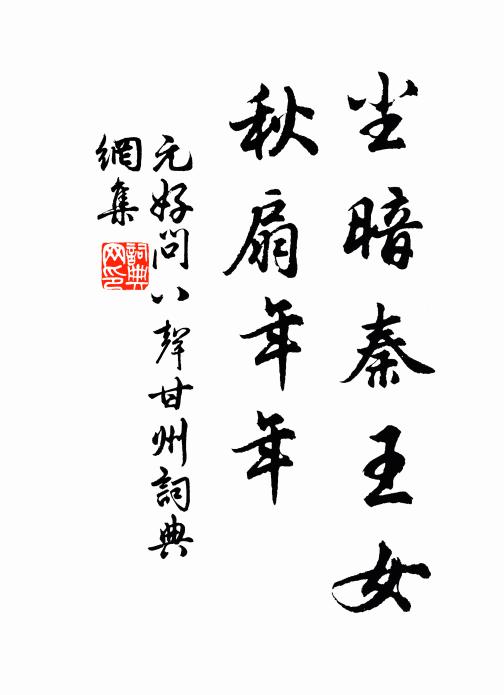 尘暗秦王女
秋扇年年
元好问八聲甘州詞典
網集
詞典网印